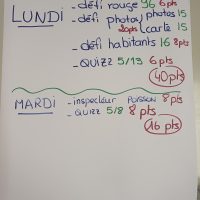 LUNDI - défi rouge 96 6pts
- défi photo photos 15
20pts carte 15
- défi habitants 16 8pts
- QUIZZ 5/13 6pts
40pts
MARDI - inspecteur POISSON 8pts
- QUIZZ 5/8 8pts
16pts